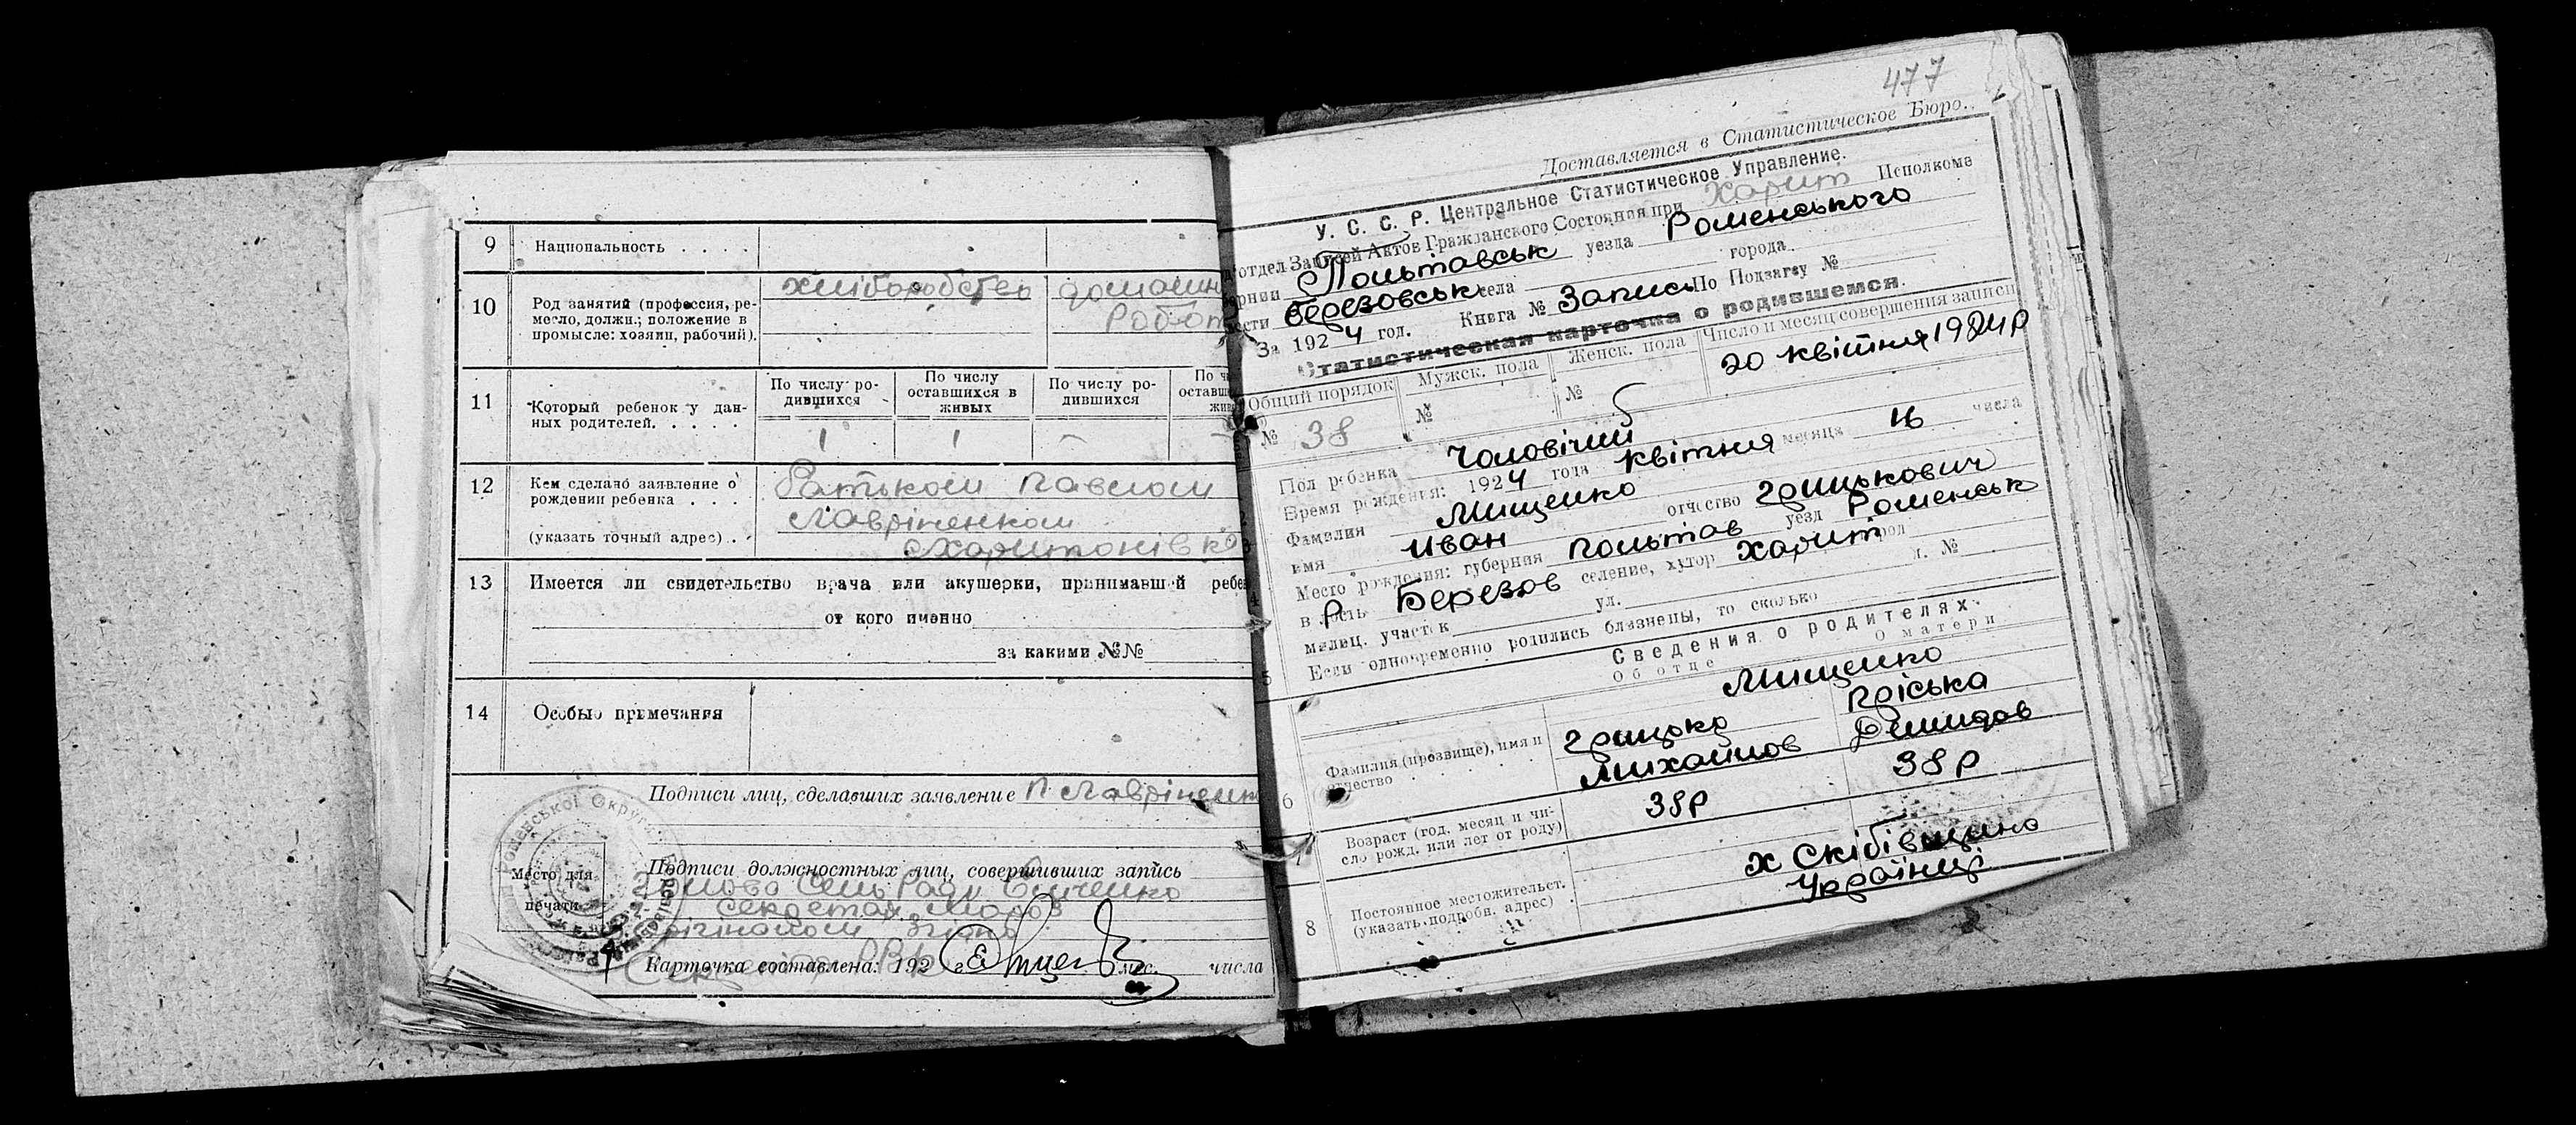 9 Национальность . . . .
10 Род занятий (профессия, ре-
месло, должн.; положение в
промысле: хозяин, рабочий).
хліборобство
домашн
робот
11 Который ребенок у дан-
ных родителей. . . . .
По числу ро-
дившихся
По числу
оставшихся в
живых
По числу ро-
дившихся
1 1 — —
12 Кем сделано заявление о
рождении ребенка . . .
(указать точный адрес) . .
Батьком Павлом
Лавріненком
х Харитонівка
13 Имеется ли свидетельство врача или акушерки, принимавшей
от кого именно
за какими №№
14 Особые примечания
Подписи лиц, сделавших заявление П Лавріненко
Подписи должностных лиц, совершивших запись
Голова Сель Ради
Секретар Мороз
Место для
печати
Карточка составлена: 192 мес. числа
477
Доставляется в Статистическое Бюро.
У. С. С. Р. Центральное Статистическое Управление.
отдел Записей Актов Гражданского Состояния при Харит Исполкоме
Полтавськ уезда Роменського
Березовськ села города
За 1924 год. Книга № Запись По Подзагсу №
Статистическая карточка о родившемся.
Общий порядок Мужск. пола Женск. пола Число и месяц совершения записи
№ 38 № № 20 квітня 1924 р
Пол ребенка Чоловічий
Время рождения: 1924 года Квітня месяца 16 числа
Фамилия Мищенко
имя Иван отчество Грицькович
Место рождения: губерния Полтав уезд Роменськ
Березов селение, хутор Харит
милиц. участок ул. №
Если одновременно родились близнецы, то сколько
Сведения о родителях.
Об отце О матери
6 Фамилия (прозвище), имя и
отчество
Мищенко
Грицько Пріська
Михайлов Демидов
Возраст (год, месяц и чи-
сло рожд. или лет от роду)
38 р 38 р
8 Постоянное местожительст.
(указать подробн. адрес)
х Скібівщина
Українці